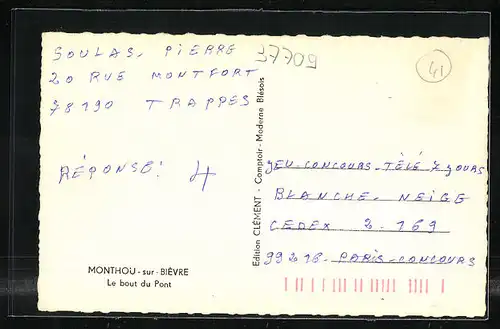 SOULAS. PIERRE
20 RUE MONTFORT
78190 TRAPPES
RÉPONSE! 4
MONTHOU-sur-BIÈVRE
Le bout du Pont
Edition CLÉMENT - Comptoir-Moderne Blésois
37709
41
JEU-CONCOURS-TÉLÉ 7 JOURS
BLANCHE-NEIGE
CEDEX 2-169
99216-PARIS-CONCOURS